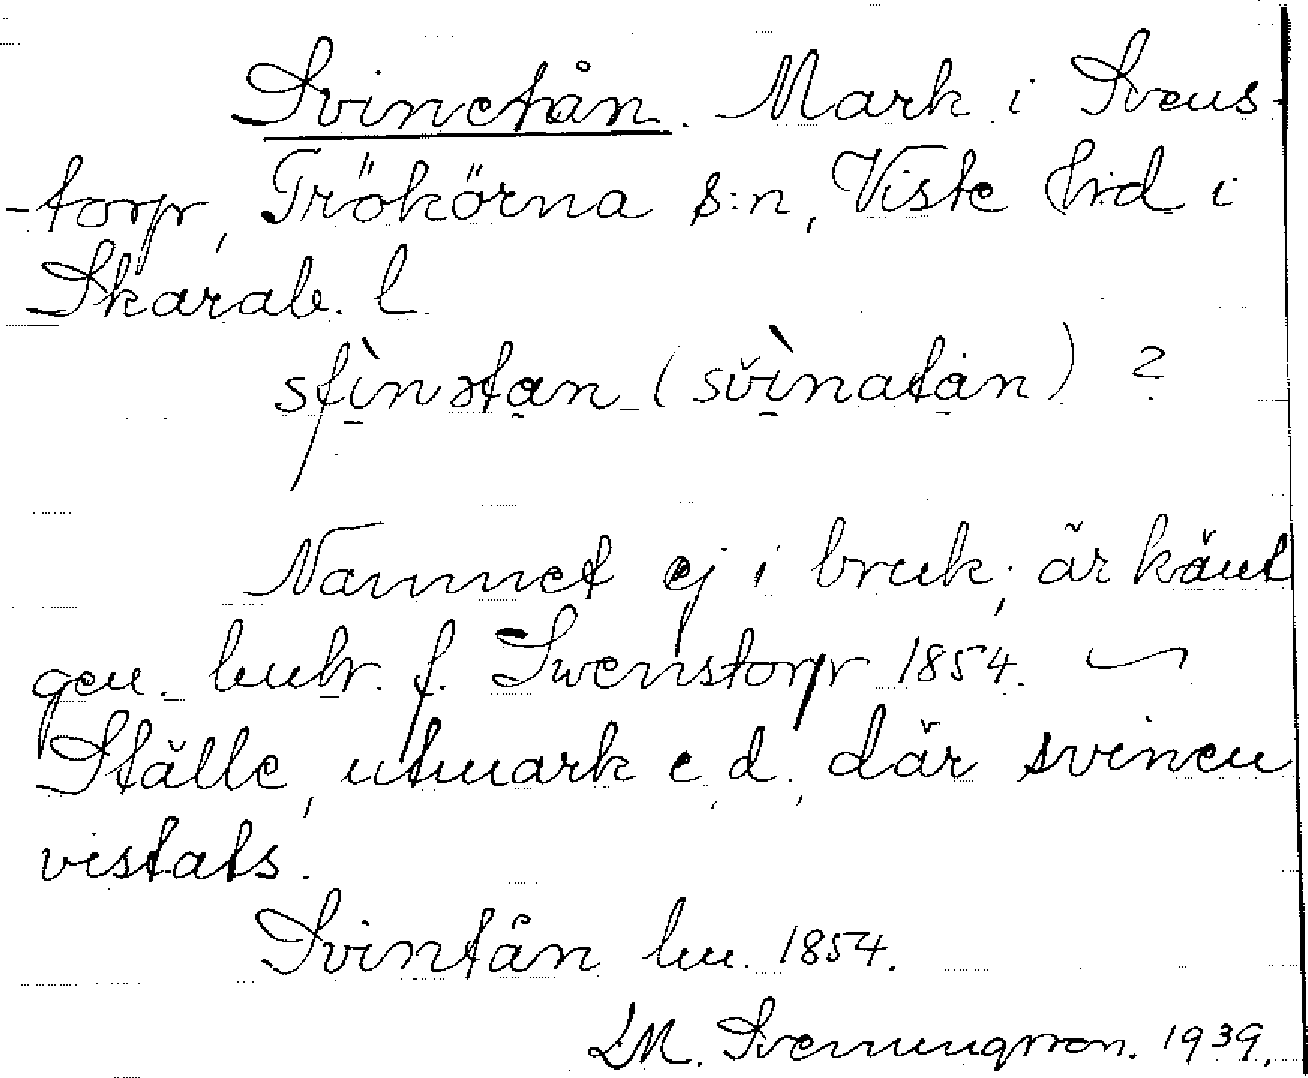 Svinetån. Mark i Svens-
-torp, Trökörna s:n, Viste hrd i
Skarab. l.
sfìnətan (svìnatån) ?
Namnet ej i bruk, är känt
gen. lmhr. f. Swenstorp 1854. ~
Ställe, utmark e. d., där svinen
vistats.
Svintån lm. 1854.
LM. Svenungsson. 1939.